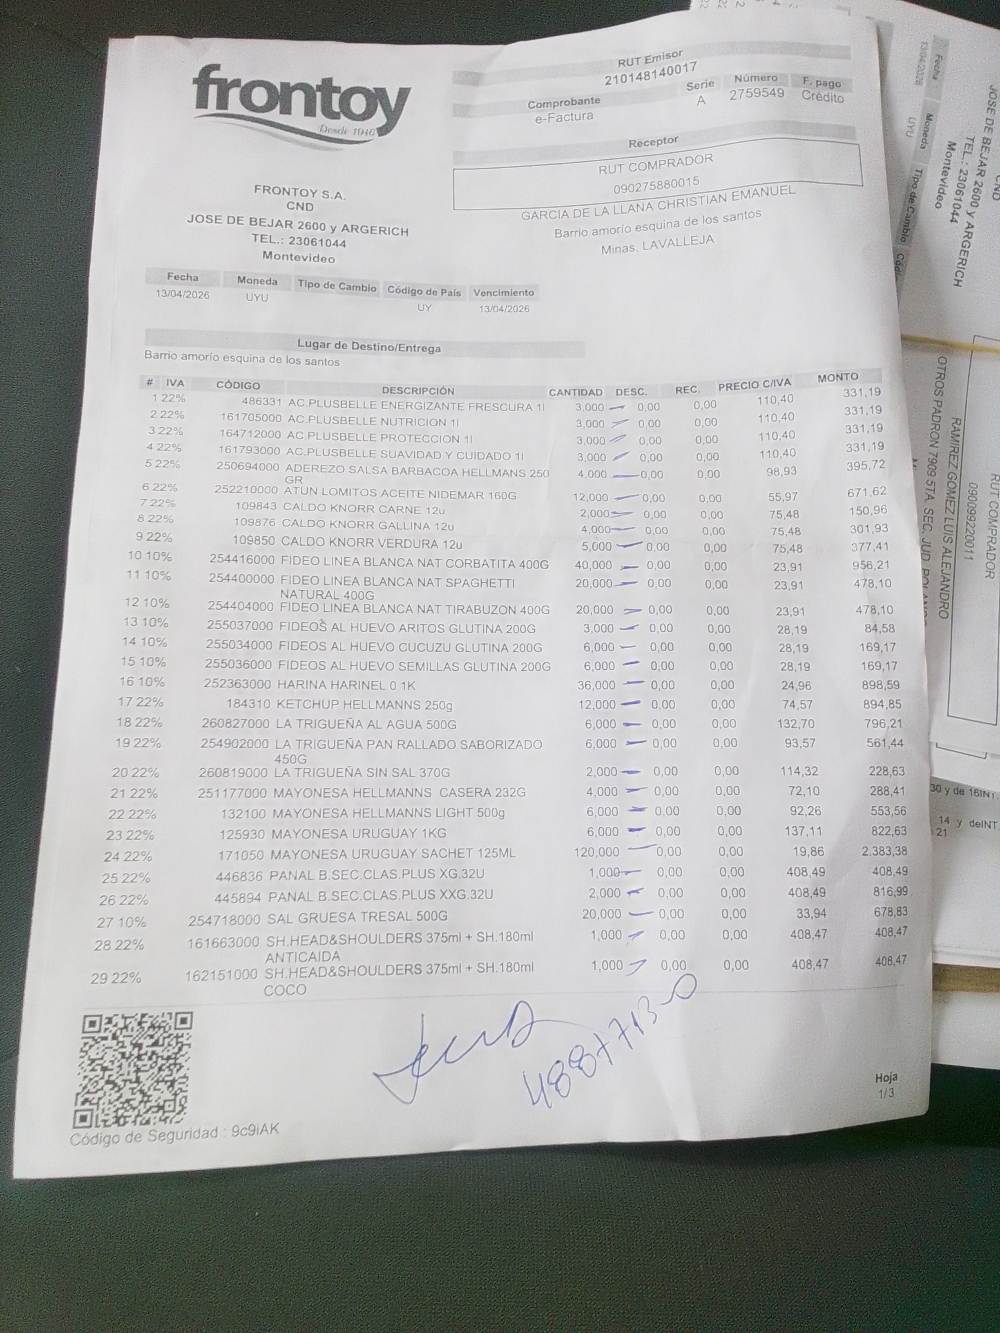 frontoy
Desde 1940
FRONTOY S.A.
CND
JOSE DE BEJAR 2600 y ARGERICH
TEL.: 23061044
Montevideo
RUT Emisor
210148140017
Comprobante Serie Número F. pago
e-Factura A 2759549 Crédito
Receptor
RUT COMPRADOR
090275880015
GARCIA DE LA LLANA CHRISTIAN EMANUEL
Barrio amorío esquina de los santos
Minas, LAVALLEJA
Fecha Moneda Tipo de Cambio Código de País Vencimiento
13/04/2026 UYU UY 13/04/2026
Lugar de Destino/Entrega
Barrio amorío esquina de los santos
# IVA CÓDIGO DESCRIPCIÓN CANTIDAD DESC. REC. PRECIO C/IVA MONTO
1 22% 486331 AC.PLUSBELLE ENERGIZANTE FRESCURA 1l 3,000 0,00 0,00 110,40 331,19
2 22% 161705000 AC.PLUSBELLE NUTRICION 1l 3,000 0,00 0,00 110,40 331,19
3 22% 164712000 AC.PLUSBELLE PROTECCION 1l 3,000 0,00 0,00 110,40 331,19
4 22% 161793000 AC.PLUSBELLE SUAVIDAD Y CUIDADO 1l 3,000 0,00 0,00 110,40 331,19
5 22% 250694000 ADEREZO SALSA BARBACOA HELLMANS 250 4,000 0,00 0,00 98,93 395,72
GR
6 22% 252210000 ATUN LOMITOS ACEITE NIDEMAR 160G 12,000 0,00 0,00 55,97 671,62
7 22% 109843 CALDO KNORR CARNE 12u 2,000 0,00 0,00 75,48 150,96
8 22% 109876 CALDO KNORR GALLINA 12u 4,000 0,00 0,00 75,48 301,93
9 22% 109850 CALDO KNORR VERDURA 12u 5,000 0,00 0,00 75,48 377,41
10 10% 254416000 FIDEO LINEA BLANCA NAT CORBATITA 400G 40,000 0,00 0,00 23,91 956,21
11 10% 254400000 FIDEO LINEA BLANCA NAT SPAGHETTI 20,000 0,00 0,00 23,91 478,10
NATURAL 400G
12 10% 254404000 FIDEO LINEA BLANCA NAT TIRABUZON 400G 20,000 0,00 0,00 23,91 478,10
13 10% 255037000 FIDEOS AL HUEVO ARITOS GLUTINA 200G 3,000 0,00 0,00 28,19 84,58
14 10% 255034000 FIDEOS AL HUEVO CUCUZU GLUTINA 200G 6,000 0,00 0,00 28,19 169,17
15 10% 255036000 FIDEOS AL HUEVO SEMILLAS GLUTINA 200G 6,000 0,00 0,00 28,19 169,17
16 10% 252363000 HARINA HARINEL 0 1K 36,000 0,00 0,00 24,96 898,59
17 22% 184310 KETCHUP HELLMANNS 250g 12,000 0,00 0,00 74,57 894,85
18 22% 260827000 LA TRIGUEÑA AL AGUA 500G 6,000 0,00 0,00 132,70 796,21
19 22% 254902000 LA TRIGUEÑA PAN RALLADO SABORIZADO 6,000 0,00 0,00 93,57 561,44
450G
20 22% 260819000 LA TRIGUEÑA SIN SAL 370G 2,000 0,00 0,00 114,32 228,63
21 22% 251177000 MAYONESA HELLMANNS CASERA 232G 4,000 0,00 0,00 72,10 288,41
22 22% 132100 MAYONESA HELLMANNS LIGHT 500g 6,000 0,00 0,00 92,26 553,56
23 22% 125930 MAYONESA URUGUAY 1KG 6,000 0,00 0,00 137,11 822,63
24 22% 171050 MAYONESA URUGUAY SACHET 125ML 120,000 0,00 0,00 19,86 2.383,38
25 22% 446836 PANAL B.SEC.CLAS.PLUS XG.32U 1,000 0,00 0,00 408,49 408,49
26 22% 445894 PANAL B.SEC.CLAS.PLUS XXG.32U 2,000 0,00 0,00 408,49 816,99
27 10% 254718000 SAL GRUESA TRESAL 500G 20,000 0,00 0,00 33,94 678,83
28 22% 161663000 SH.HEAD&SHOULDERS 375ml + SH.180ml 1,000 0,00 0,00 408,47 408,47
ANTICAIDA
29 22% 162151000 SH.HEAD&SHOULDERS 375ml + SH.180ml 1,000 0,00 0,00 408,47 408,47
COCO
4887713-0
Código de Seguridad : 9c9iAK
Hoja
1/3
JOSE DE BEJAR 2600 y ARGERICH
TEL.: 23061044
Montevideo
Fecha Moneda Tipo de Cambio
13/04/2026 UYU
RUT COMPRADOR
090099220011
RAMIREZ GOMEZ LUIS ALEJANDRO
OTROS PADRON 7909 5TA. SEC. JUD.